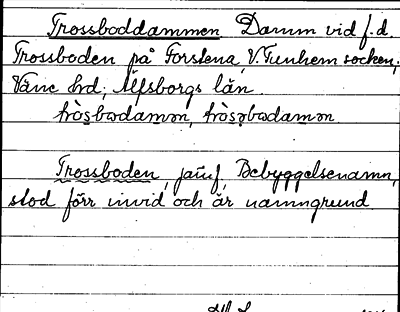 Trossboddammen Damm vid f.d.
Trossboden på Forstena, V. Tunhem socken,
Väne hd; Älfsborgs län.
tròs̲bωdamən, tròsəbωdamən
Trossboden, jämf, Bebyggelsenamn,
stod förr invid och är namngrund